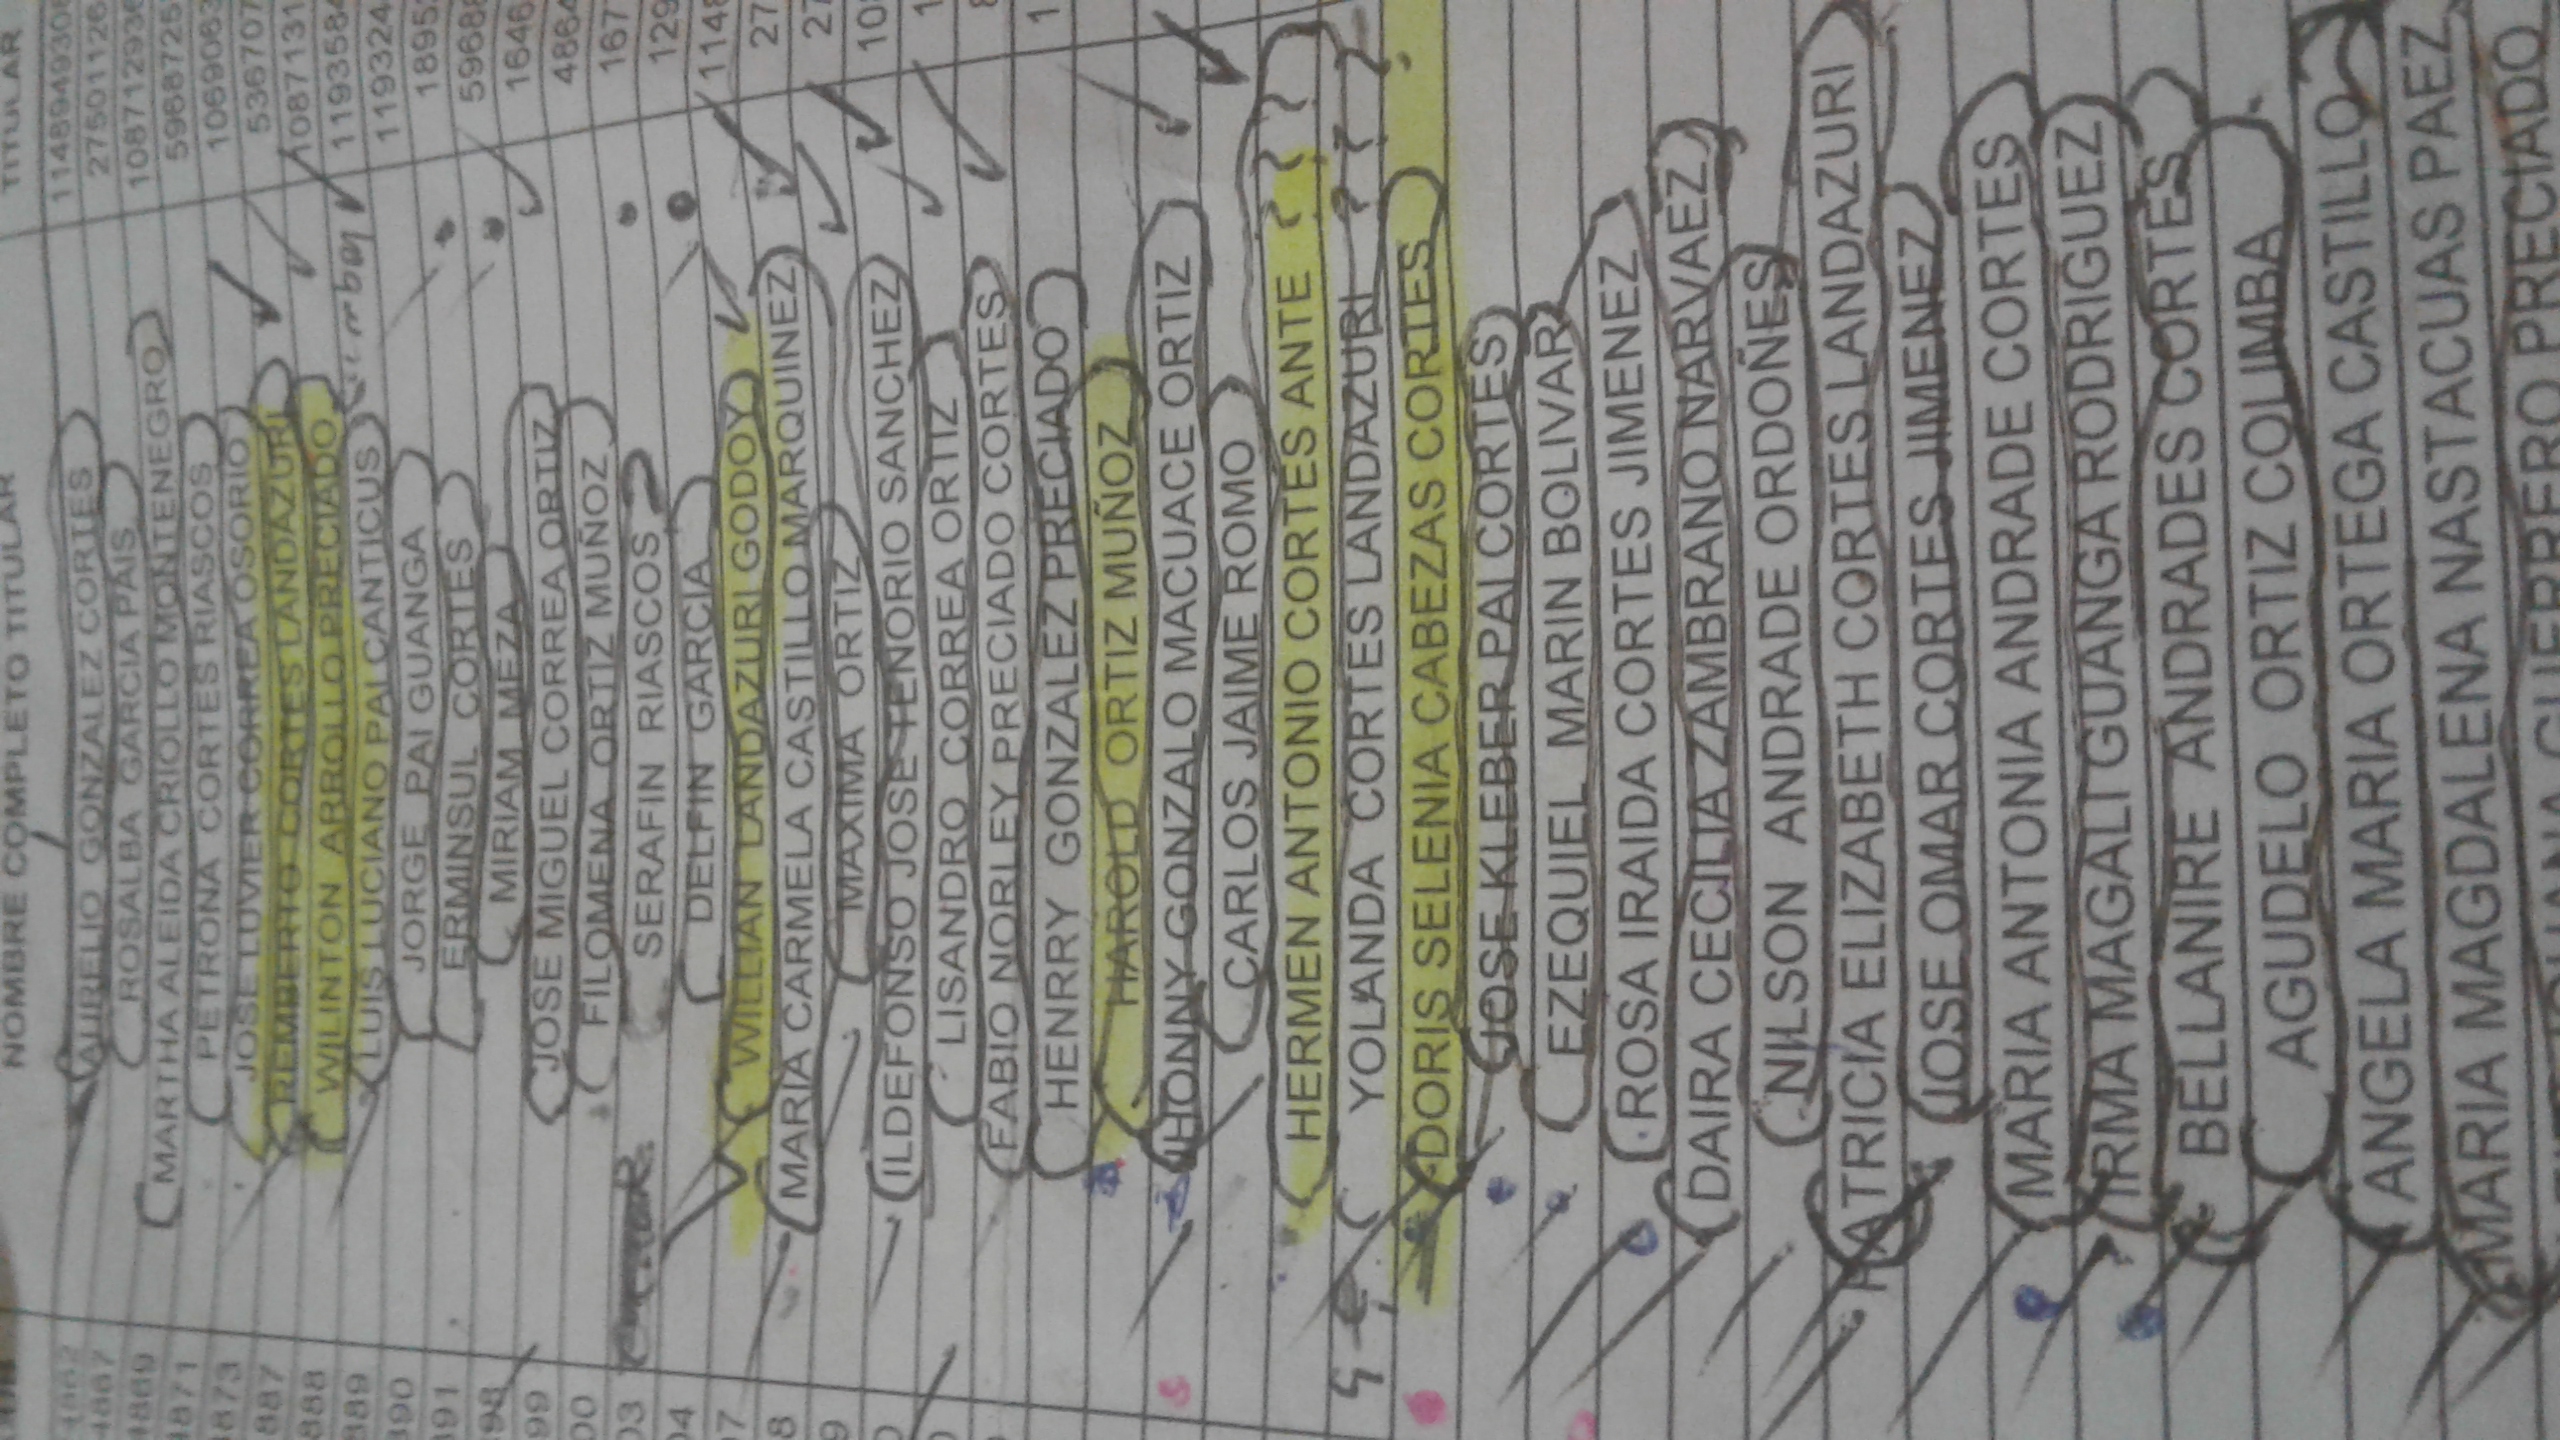 NOMBRE COMPLETO TITULAR TITULAR
4862 AURELIO GONZALEZ CORTES 114894930
4867 ROSALBA GARCIA PAIS 27501126
4869 MARTHA ALEIDA CRIOLLO MONTENEGRO 108712936
4871 PETRONA CORTES RIASCOS 59687251
4873 JOSE LUVIER CORREA OSORIO 10690683
887 REMBERTO CORTES LANDAZURI 536707
888 WILINTON ARROLLO PRECIADO 1087131
889 LUIS LUCIANO PAI CANTICUS 1193584
890 JORGE PAI GUANGA 119324
891 ERMINSUL CORTES 1895
898 MIRIAM MEZA 5968
899 JOSE MIGUEL CORREA ORTIZ 1646
00 FILOMENA ORTIZ MUÑOZ 4864
03 SERAFIN RIASCOS 167
04 DELFIN GARCIA 129
07 WILLIAN LANDAZURI GODOY 1148
8 MARIA CARMELA CASTILLO MARQUINEZ 27
9 MAXIMA ORTIZ 27
0 ILDEFONSO JOSE TENORIO SANCHEZ 10
LISANDRO CORREA ORTIZ 1
FABIO NORLEY PRECIADO CORTES
HENRRY GONZALEZ PRECIADO 1
HAROLD ORTIZ MUÑOZ
JHONNY GONZALO MACUACE ORTIZ
CARLOS JAIME ROMO
HERMEN ANTONIO CORTES ANTE ? ? ?
YOLANDA CORTES LANDAZURI ? ? ?
DORIS SELENIA CABEZAS CORTES
JOSE KLEBER PAI CORTES
EZEQUIEL MARIN BOLIVAR
ROSA IRAIDA CORTES JIMENEZ
DAIRA CECILIA ZAMBRANO NARVAEZ
NILSON ANDRADE ORDOÑES
PATRICIA ELIZABETH CORTES LANDAZURI
JOSE OMAR CORTES JIMENEZ
MARIA ANTONIA ANDRADE CORTES
IRMA MAGALI GUANGA RODRIGUEZ
BELLANIRE ANDRADES CORTES
AGUDELO ORTIZ COLIMBA
ANGELA MARIA ORTEGA CASTILLO
MARIA MAGDALENA NASTACUAS PAEZ
GUERRERO PRECIADO